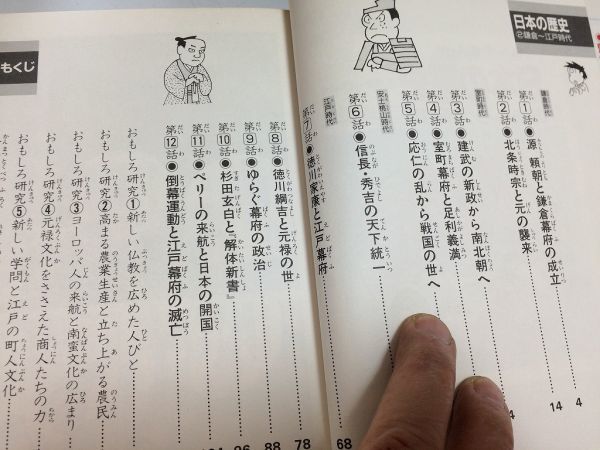 日本の歴史
②鎌倉〜江戸時代
鎌倉時代
第1話●源頼朝と鎌倉幕府の成立 4
第2話●北条時宗と元の襲来 14
室町時代
第3話●建武の新政から南北朝へ
第4話●室町幕府と足利義満
第5話●応仁の乱から戦国の世へ
安土桃山時代
第6話●信長・秀吉の天下統一
江戸時代
第7話●徳川家康と江戸幕府 68
第8話●徳川綱吉と元禄の世 78
第9話●ゆらぐ幕府の政治 88
第10話●杉田玄白と『解体新書』 96
第11話●ペリーの来航と日本の開国
第12話●倒幕運動と江戸幕府の滅亡
もくじ
おもしろ研究①新しい仏教を広めた人びと
おもしろ研究②高まる農業生産と立ち上がる農民
おもしろ研究③ヨーロッパ人の来航と南蛮文化の広まり
おもしろ研究④元禄文化をささえた商人たちの力
おもしろ研究⑤新しい学問と江戸の町人文化